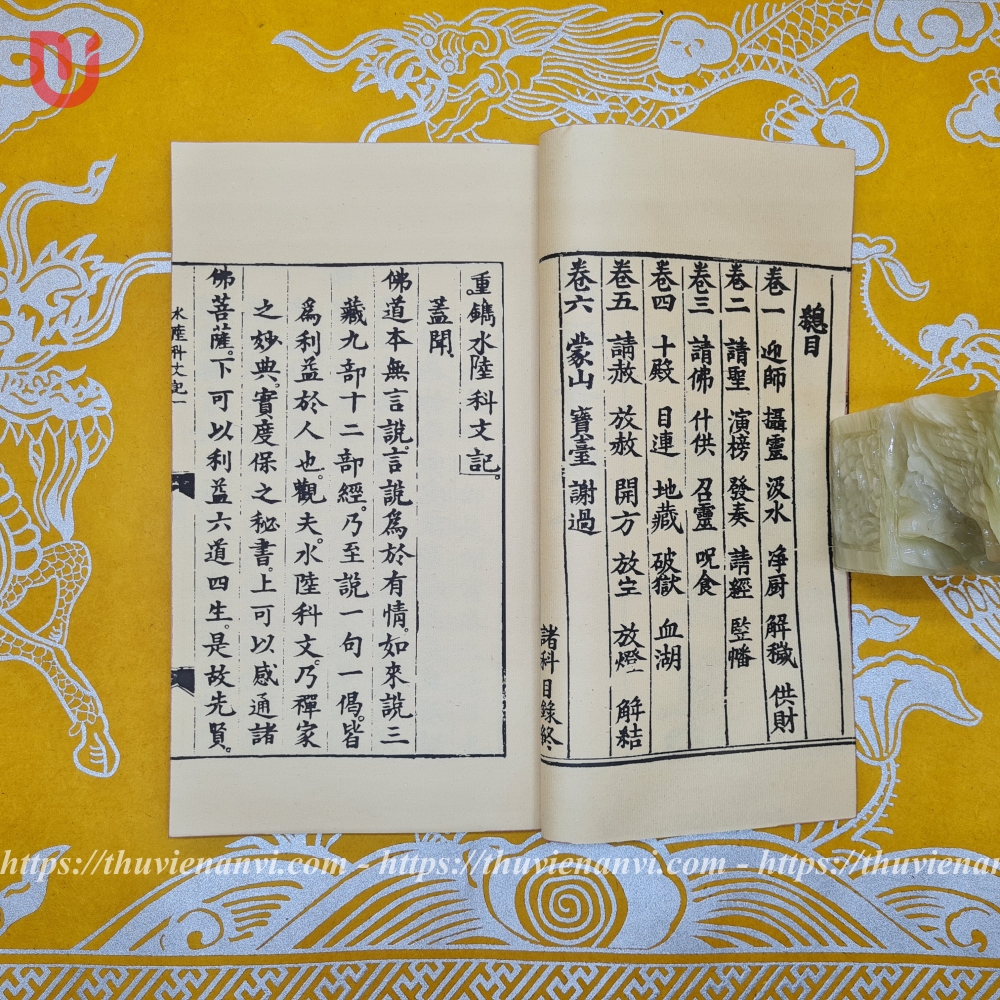 總目
卷一 迎師 攝靈 汲水 净厨 解穢 供財
卷二 請聖 演榜 發奏 請經 竪幡
卷三 請佛 什供 召靈 呪食
卷四 十殿 目連 地藏 破獄 血湖
卷五 請赦 放赦 開方 放生 放燈 解結
卷六 蒙山 寶臺 謝過
諸科目錄終
重鐫水陸科文記。
蓋聞
佛道本無言說。言說爲於有情。如來說三
藏九部十二部經。乃至說一句一偈。皆
爲利益於人也。觀夫。水陸科文。乃禪家
之妙典。實度保之秘書。上可以感通諸
佛菩薩。下可以利益六道四生。是故先賢。
水陸科文記一
https://thuvienanvi.com - https://thuvienanvi.com - https://thuviena